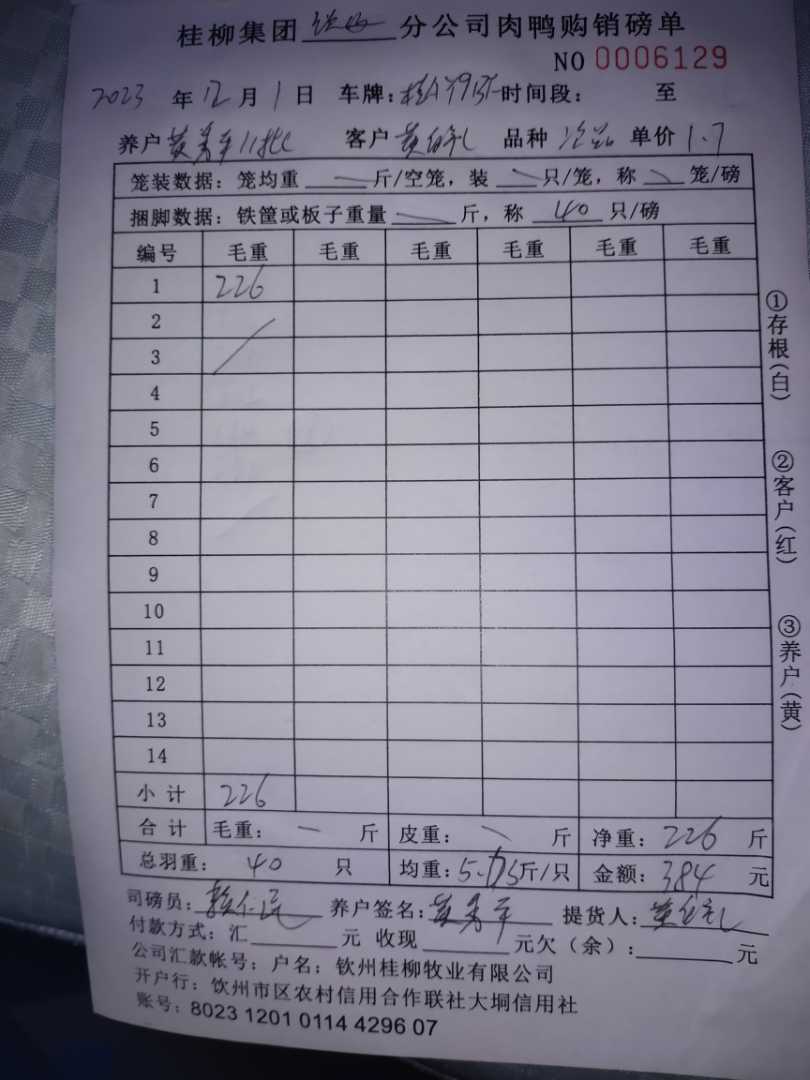 桂柳集团 分公司肉鸭购销磅单
NO 0006129
2023 年 12 月 1 日 车牌: 时间段: 至
养户 黄秀平11批 客户 品种 单价 1.7
笼装数据: 笼均重 斤/空笼, 装 只/笼, 称 笼/磅
捆脚数据: 铁筐或板子重量 斤, 称 40 只/磅
编号 毛重 毛重 毛重 毛重 毛重 毛重
1 226
2
3
4
5
6
7
8
9
10
11
12
13
14
小计 226
合计 毛重: 斤 皮重: 斤 净重: 226 斤
总羽重: 40 只 均重: 斤/只 金额: 384 元
司磅员: 养户签名: 黄秀平 提货人:
付款方式: 汇 元 收现 元欠(余): 元
公司汇款帐号: 户名: 钦州桂柳牧业有限公司
开户行: 钦州市区农村信用合作联社大垌信用社
账号: 8023 1201 0114 4296 07
①存根(白)
②客户(红)
③养户(黄)